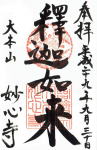 奉拝 平成二九年九月三十日
釋迦如来
大本山
妙心寺